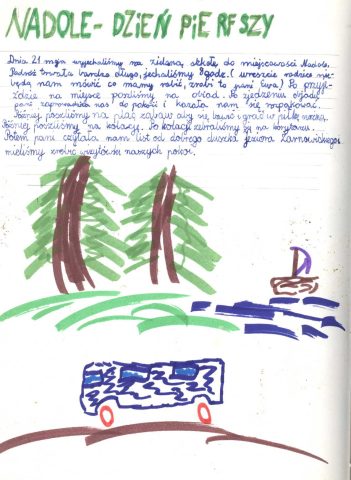 NADOLE- DZIEŃ PIERFSZY
Dnia 21 maja wyjechaliśmy na zieloną szkołę do miejscowości Nadole.
Podróż trwała bardzo długo, jechaliśmy 8 godz. (wreszcie rodzice nie
będą nam mówić co mamy robić, zrobi to pani Ewa.) Po przyje-
ździe na miejsce poszliśmy na obiad. Po zjedzeniu obiadu
pani zaprowadziła nas do pokoi i kazała nam się rozpakować.
Później poszliśmy na plac zabaw aby się bawić i grać w piłkę nożną.
Później poszliśmy na kolację. Po kolacji zebraliśmy się na korytarzu.
Potem pani czytała nam list od dobrego duszka jeziora Żarnowieckiego
mieliśmy zrobić wizytówki naszych pokoi.